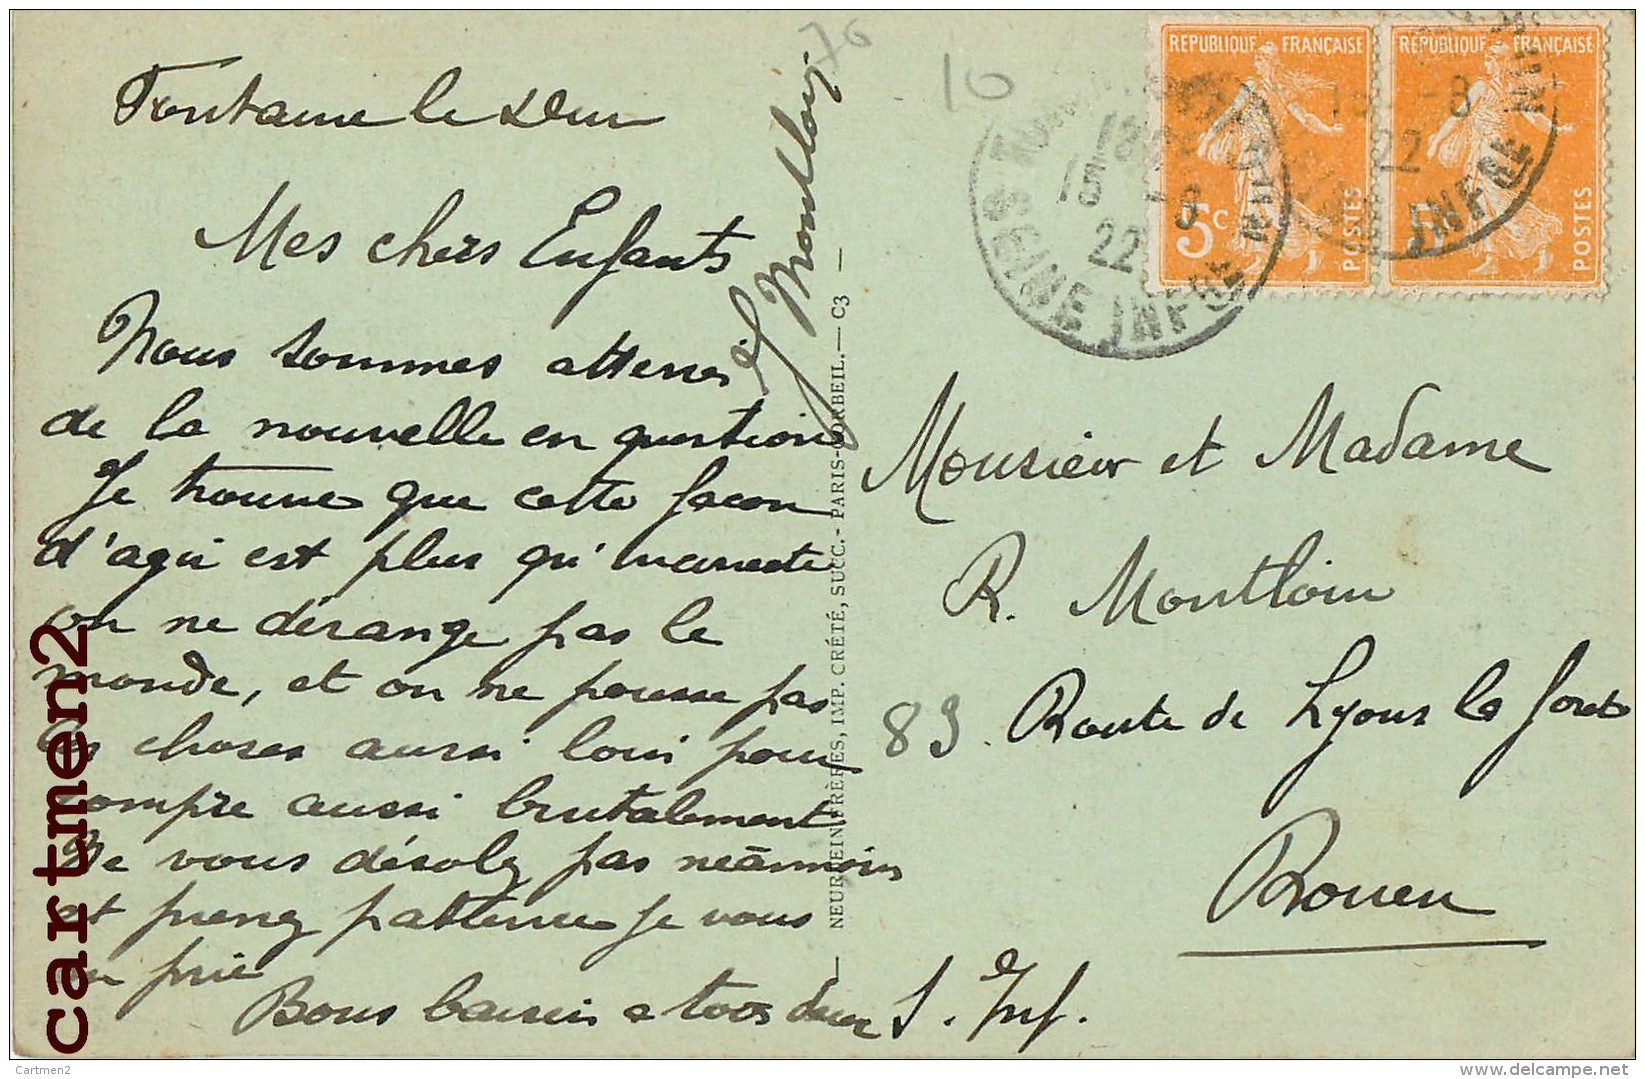 Fontaine le Dun
Mes chers Enfants
Nous sommes atterrés
de la nouvelle en question
Je trouve que cette façon
d'agir est plus qu'
on ne dérange pas le
monde, et on ne pousse pas
les choses aussi loin pour
rompre aussi brutalement
Ne vous désolez pas néanmoins
et prenez patience je vous
en prie
Bons baisers a tous deux
70
10
RÉPUBLIQUE FRANÇAISE
5c
POSTES
RÉPUBLIQUE FRANÇAISE
5
POSTES
18
15 -8
22
SEINE INFRE
-8
22
INFRE
NEURDEIN FRÈRES, IMP. CRÉTÉ, SUCC. - PARIS-CORBEIL. — C3 —
Monsieur et Madame
R. Montloin
89 Route de Lyons la forêt
Rouen
S. Inf.
cartmen2
Cartmen2
www.delcampe.net